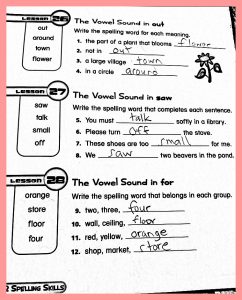 Lesson 26
The Vowel Sound in out
out
around
town
flower
Write the spelling word for each meaning.
1. the part of a plant that blooms flower
2. not in out
3. a large village town
4. in a circle around
Lesson 27
The Vowel Sound in saw
saw
talk
small
off
Write the spelling word that completes each sentence.
5. You must talk softly in a library.
6. Please turn off the stove.
7. These shoes are too small for me.
8. We saw two beavers in the pond.
Lesson 28
The Vowel Sound in for
orange
store
floor
four
Write the spelling word that belongs in each group.
9. two, three, four
10. wall, ceiling, floor
11. red, yellow, orange
12. shop, market, store
2 SPELLING SKILLS